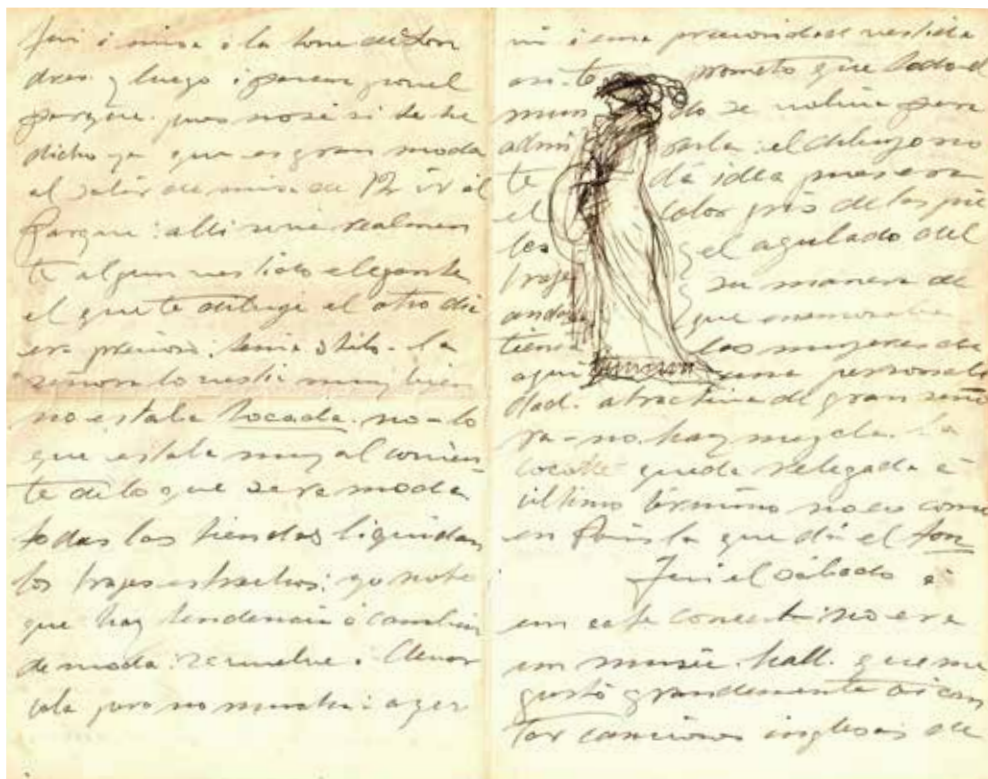 fui á misa á la torre de Lon
dres y luego á pasear por el
parque. pues no sé si te he
dicho ya que es gran moda
al salir de misa de 12 ir al
Parque: alli se ve realmen
te algun vestido elegante
el que te dibujé el otro dia
era precioso; tenia stilo. la
señora lo vestia muy bien
no estaba tocada. no lo
que estaba muy al corrien
te de lo que sera moda
todas las tiendas liquidan
los trajes estrechos: yo noto
que hay tendencia á cambiar
de moda: se vuelve á llevar
cola pero no mucha: ayer
vi á una preciosidad vestida
asi. te prometo que todo el
mundo se volvia para
admirarla: el dibujo no
te dá idea pues era
el color gris de las pie
les el azulado del
traje su manera de
andar que enamoraba
tienen las mujeres de
aqui una personali
dad. atractiva de gran seño
ra - no hay mezcla. la
cocotte queda relegada á
último término no es como
en Paris la que dá el ton
Fui el Sábado á
un café concert no era
un music-hall. que me
gustó grandemente oi can
tar canciones inglesas de